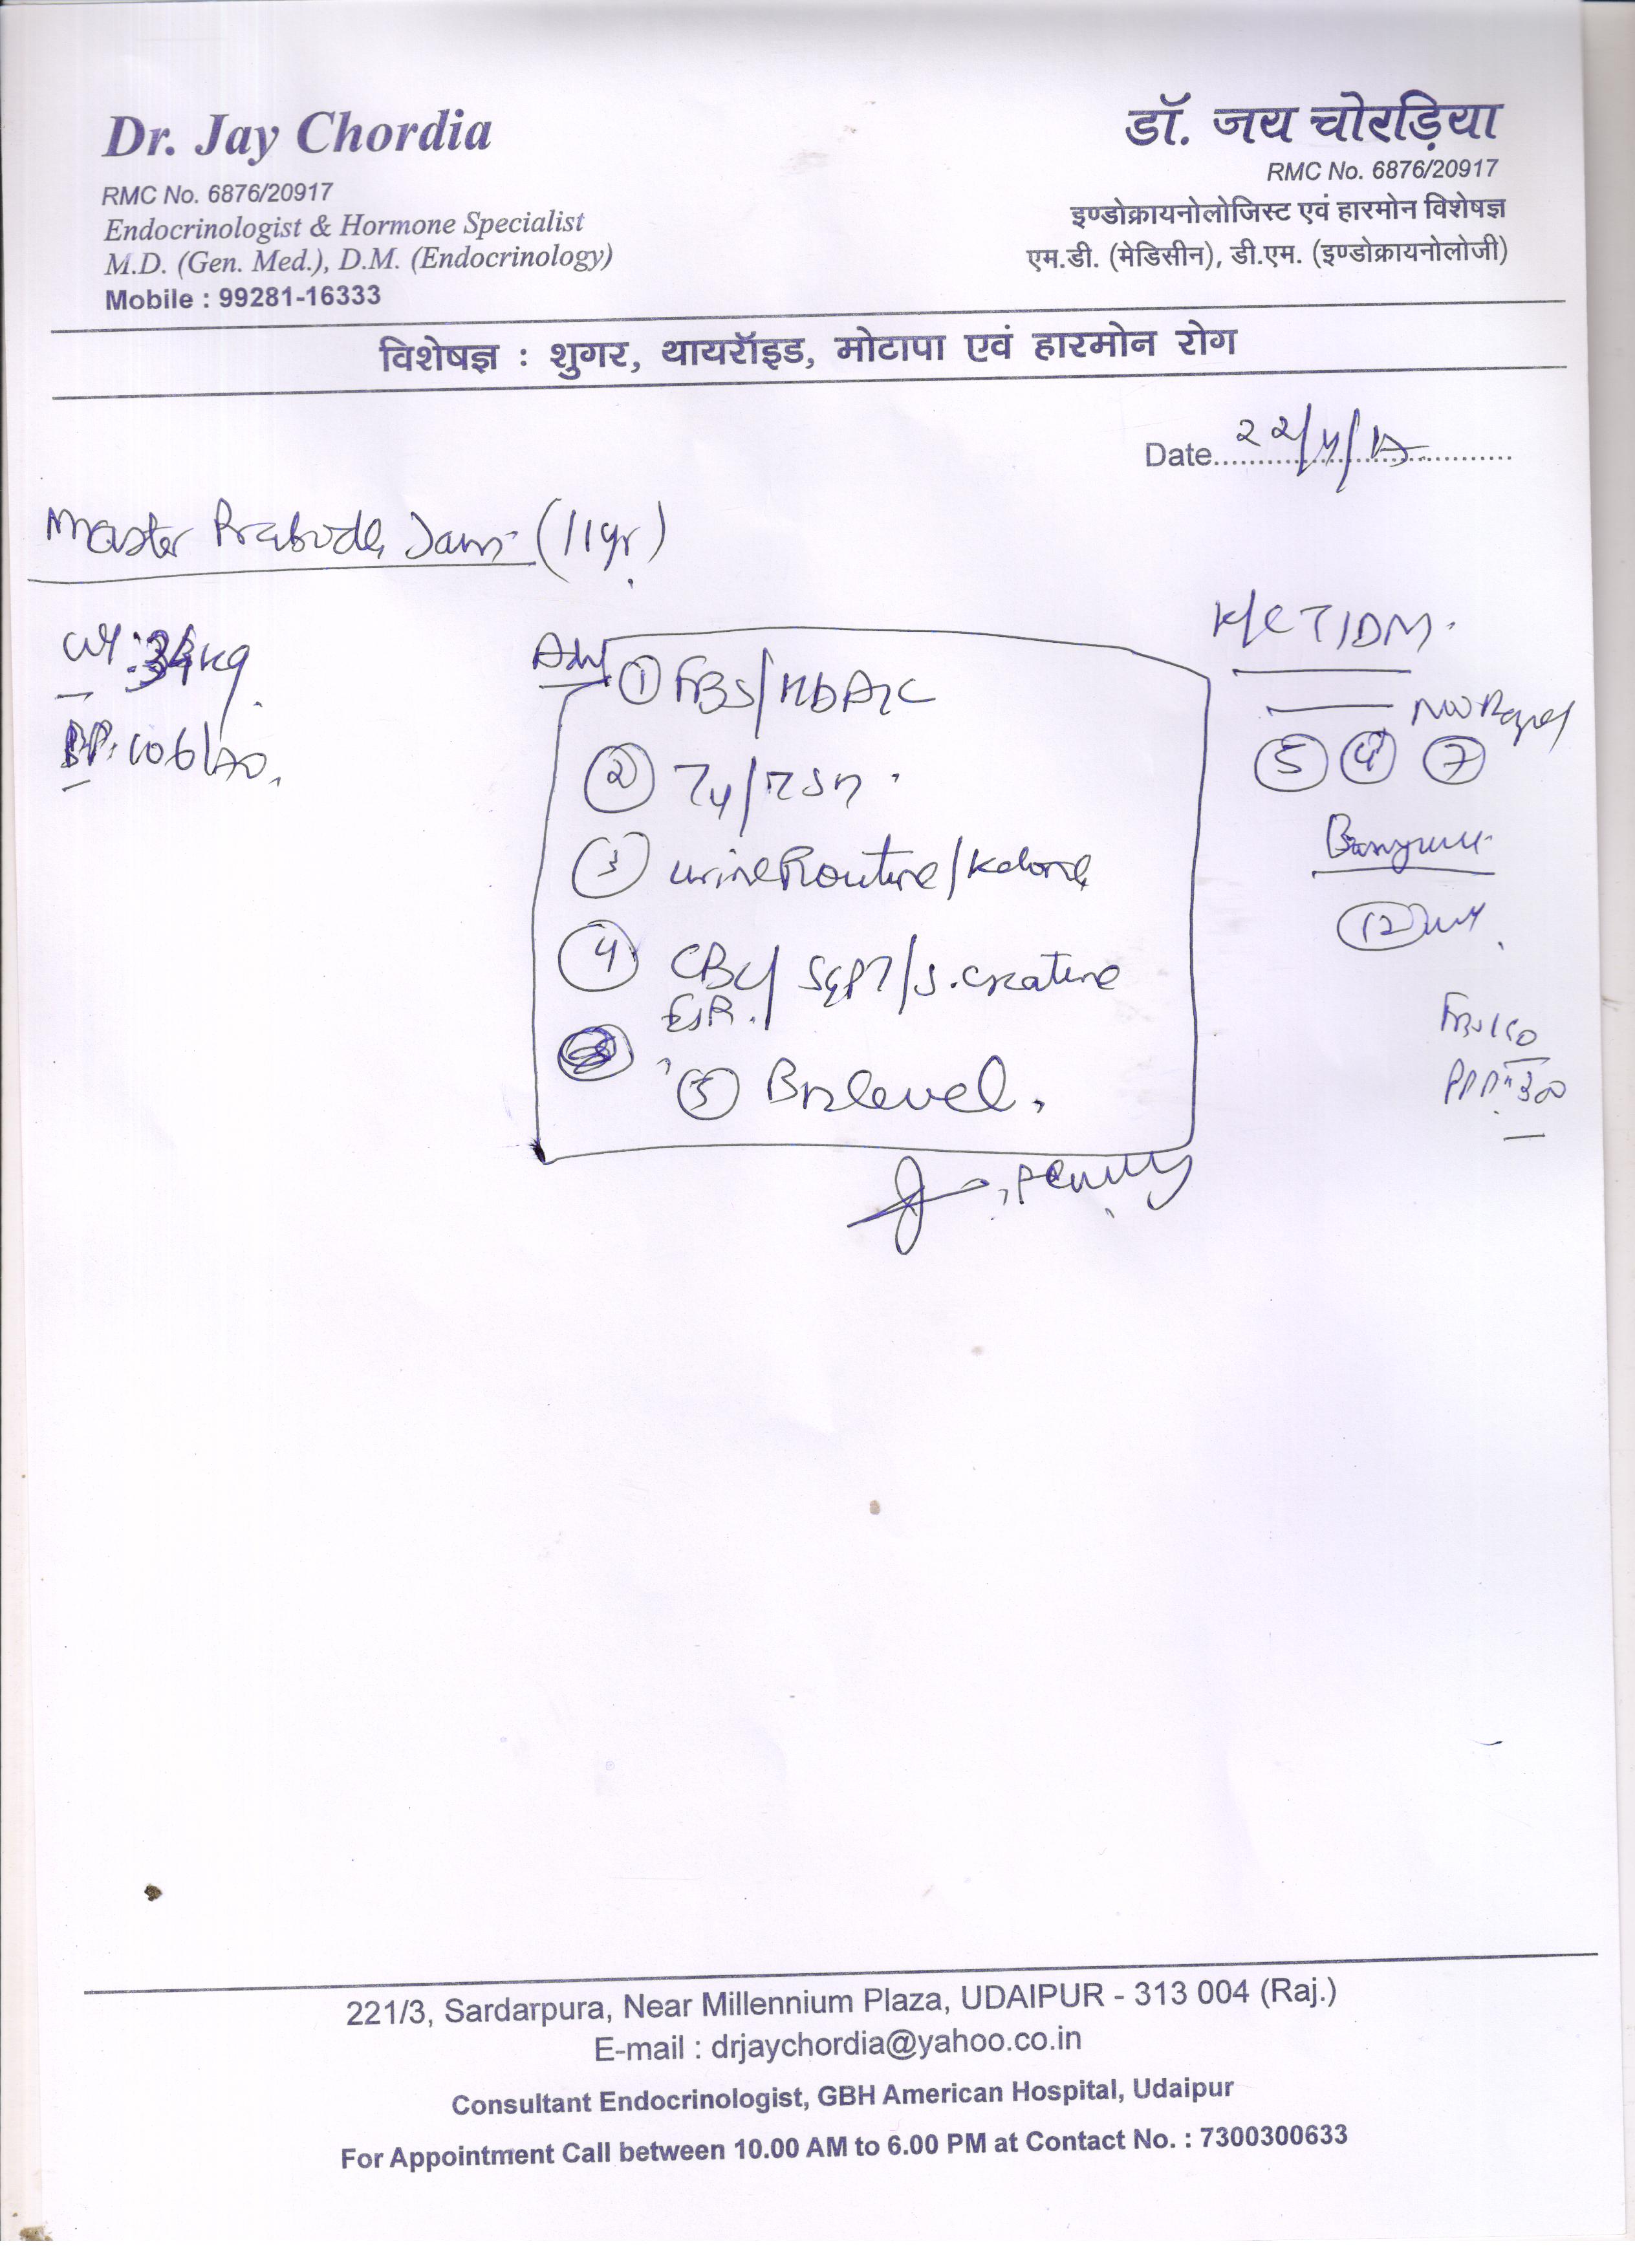 Dr. Jay Chordia
RMC No. 6876/20917
Endocrinologist & Hormone Specialist
M.D. (Gen. Med.), D.M. (Endocrinology)
Mobile : 99281-16333
डॉ. जय चोरड़िया
RMC No. 6876/20917
इण्डोक्रायनोलोजिस्ट एवं हारमोन विशेषज्ञ
एम.डी. (मेडिसीन), डी.एम. (इण्डोक्रायनोलोजी)
विशेषज्ञ : शुगर, थायरॉइड, मोटापा एवं हारमोन रोग
Date 22/4/17
Master (11yr)
Wt: 34kg
BP: 106/70
Adv
① FBS/HbA1c
② T4/TSH
③ urine Routine/Ketone
④ CBC/SGPT/S.creatine
ESR
⑤ B12 level.
K/C T1DM.
⑤ ④ ⑦
⑫
221/3, Sardarpura, Near Millennium Plaza, UDAIPUR - 313 004 (Raj.)
E-mail : drjaychordia@yahoo.co.in
Consultant Endocrinologist, GBH American Hospital, Udaipur
For Appointment Call between 10.00 AM to 6.00 PM at Contact No. : 7300300633